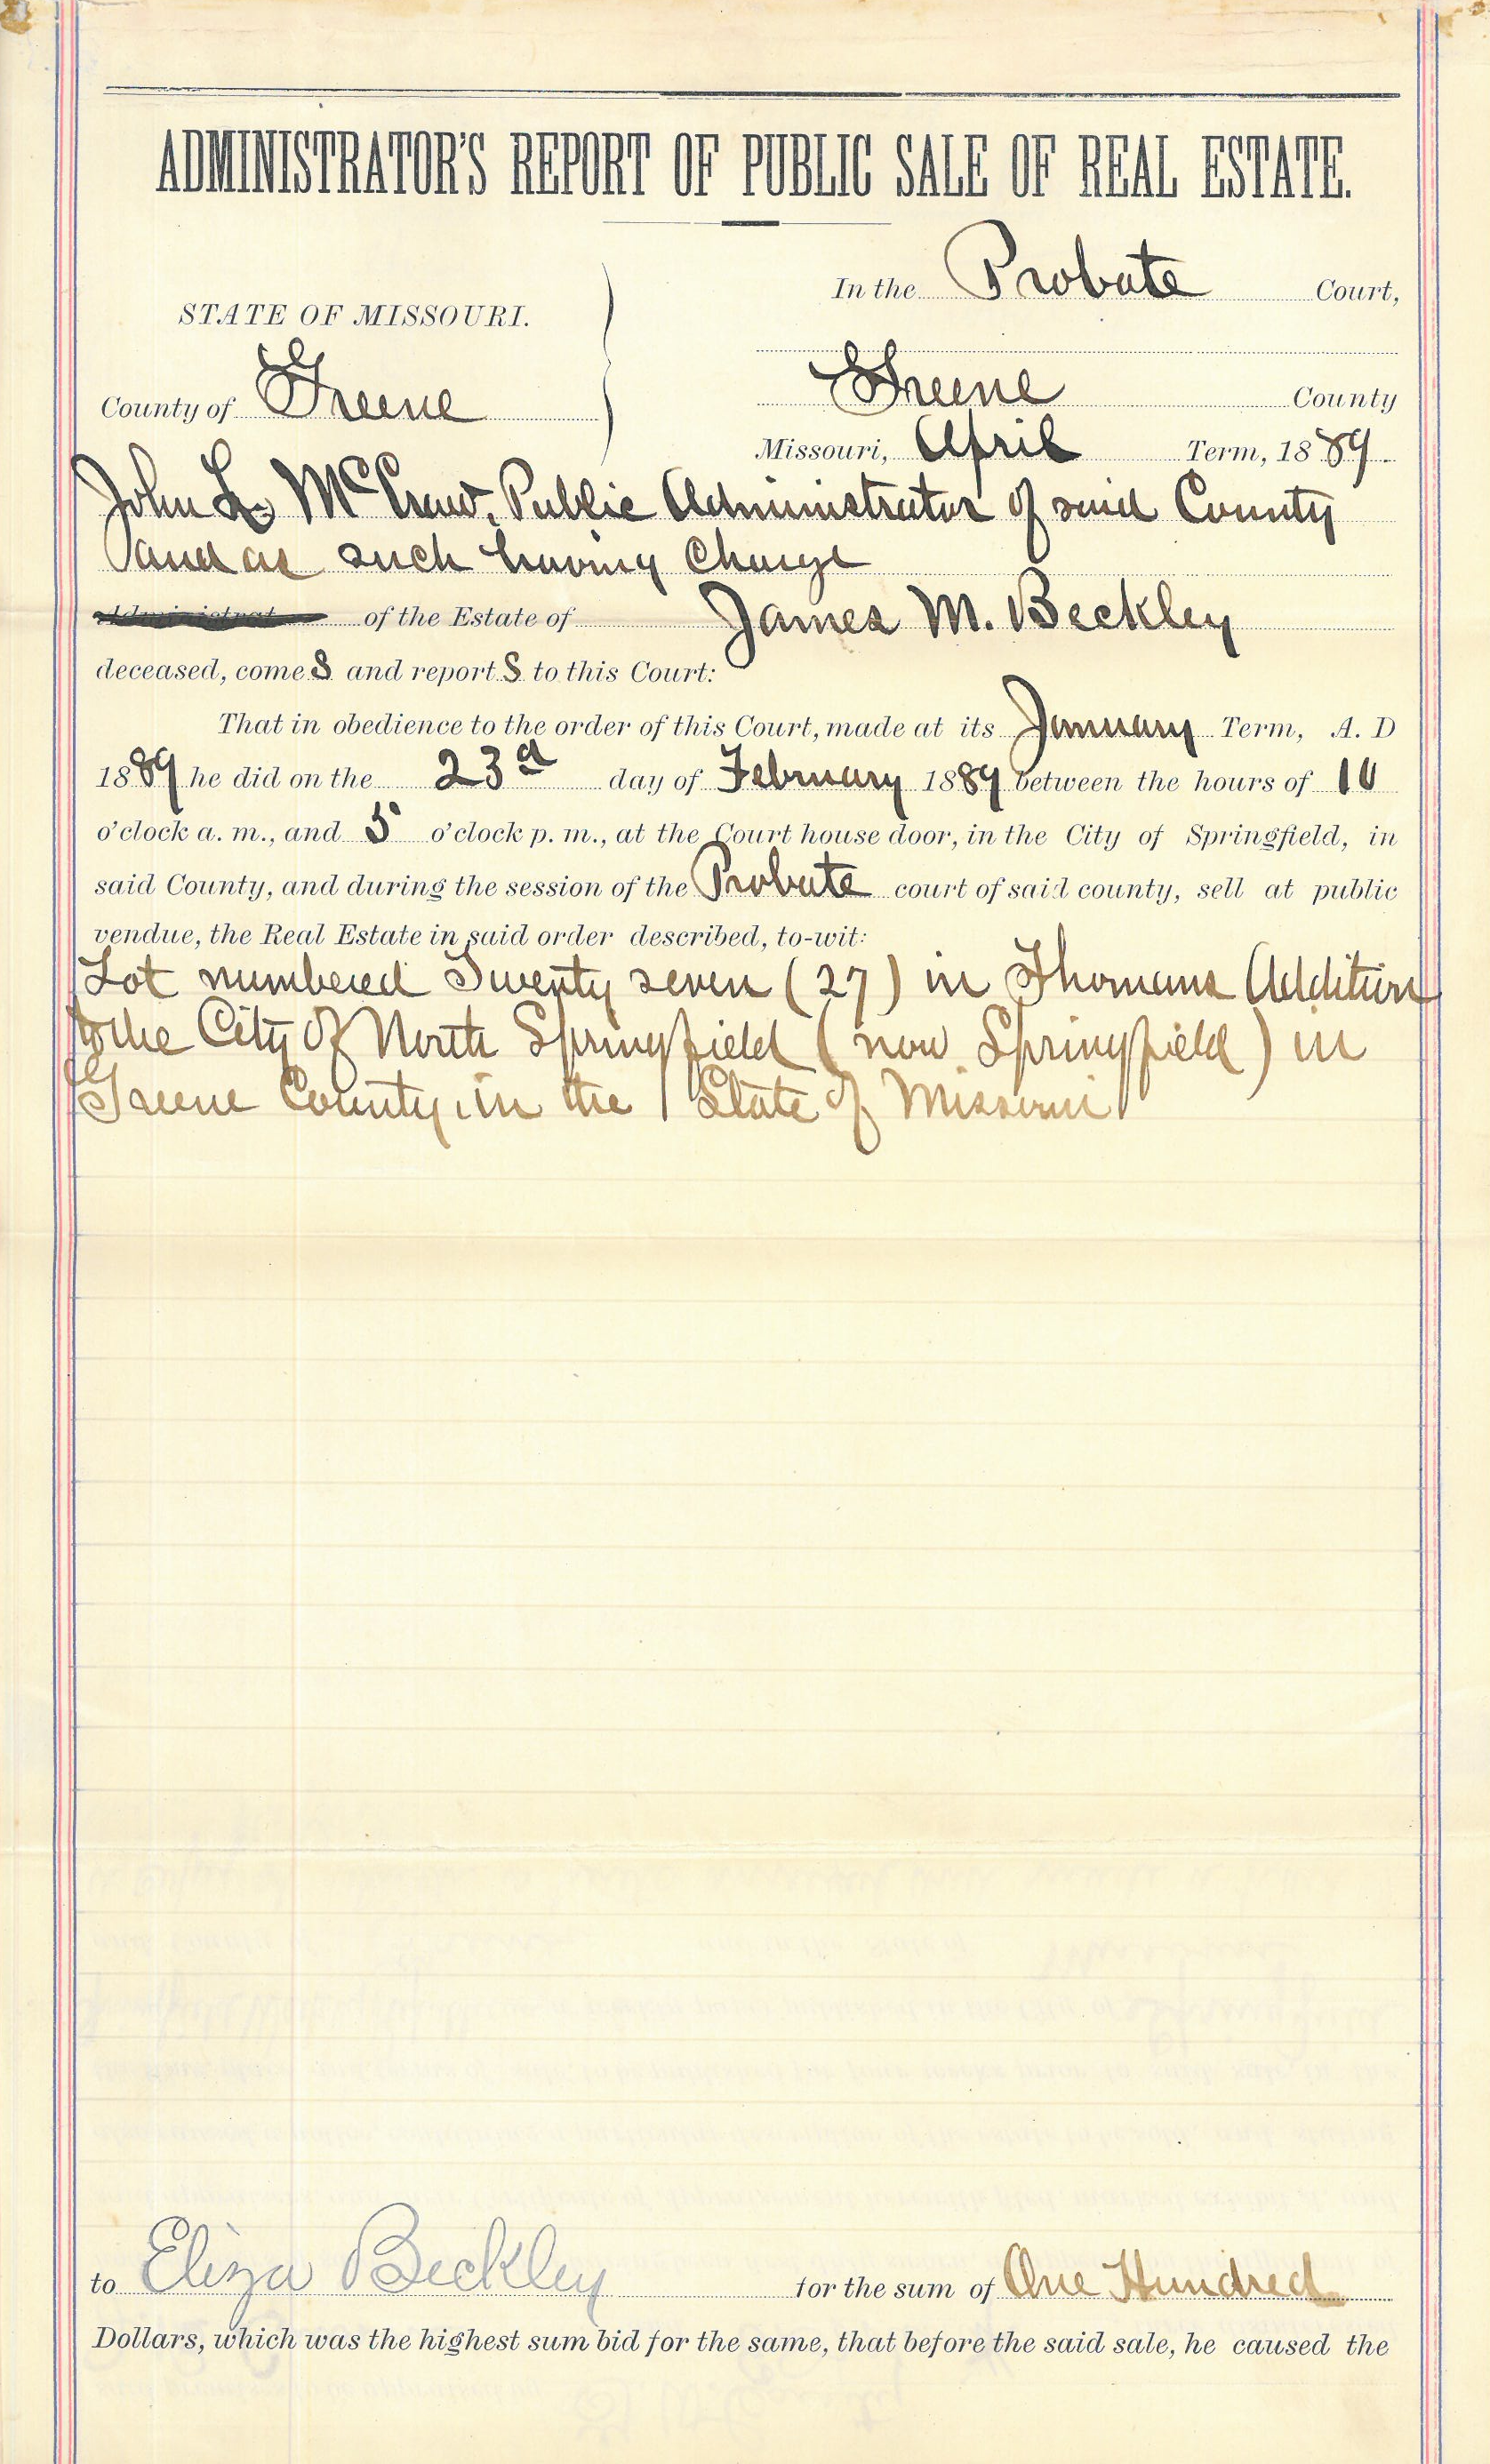 ADMINISTRATOR'S REPORT OF PUBLIC SALE OF REAL ESTATE.
In the Probate Court,
STATE OF MISSOURI.
County of Greene
Greene County
Missouri, April Term, 1889
John L. McCraw, Public Administrator of said County
and as such having charge
Administrat of the Estate of James M. Beckley
deceased, comes and reports to this Court:
That in obedience to the order of this Court, made at its January Term, A. D
1889 he did on the 23d day of February 1889 between the hours of 10
o'clock a. m., and 5 o'clock p. m., at the Court house door, in the City of Springfield, in
said County, and during the session of the Probate court of said county, sell at public
vendue, the Real Estate in said order described, to-wit:
Lot numbered Twenty seven (27) in Thomans Addition
to the City of North Springfield (now Springfield) in
Greene County, in the State of Missouri
to Eliza Beckley for the sum of One Hundred
Dollars, which was the highest sum bid for the same, that before the said sale, he caused the